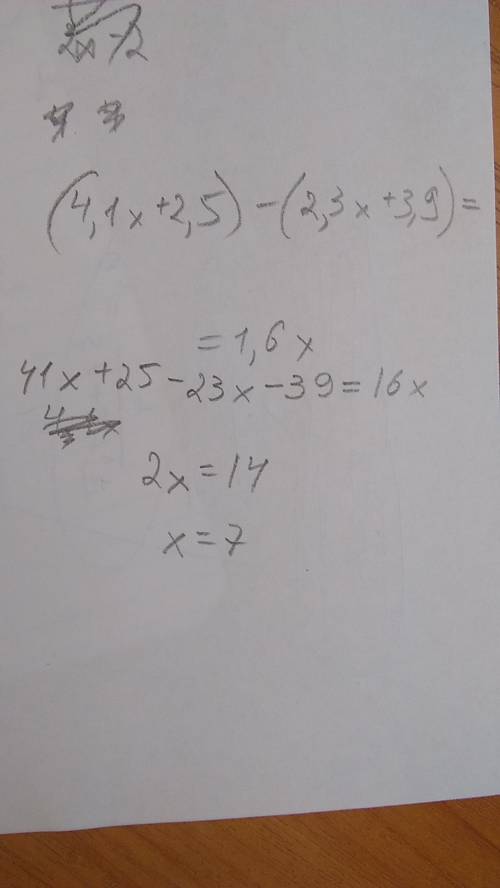 2x - 2
(4,1x+2,5)-(2,3x+3,9)=
=1,6x
41x+25-23x-39=16x
2x=14
x=7